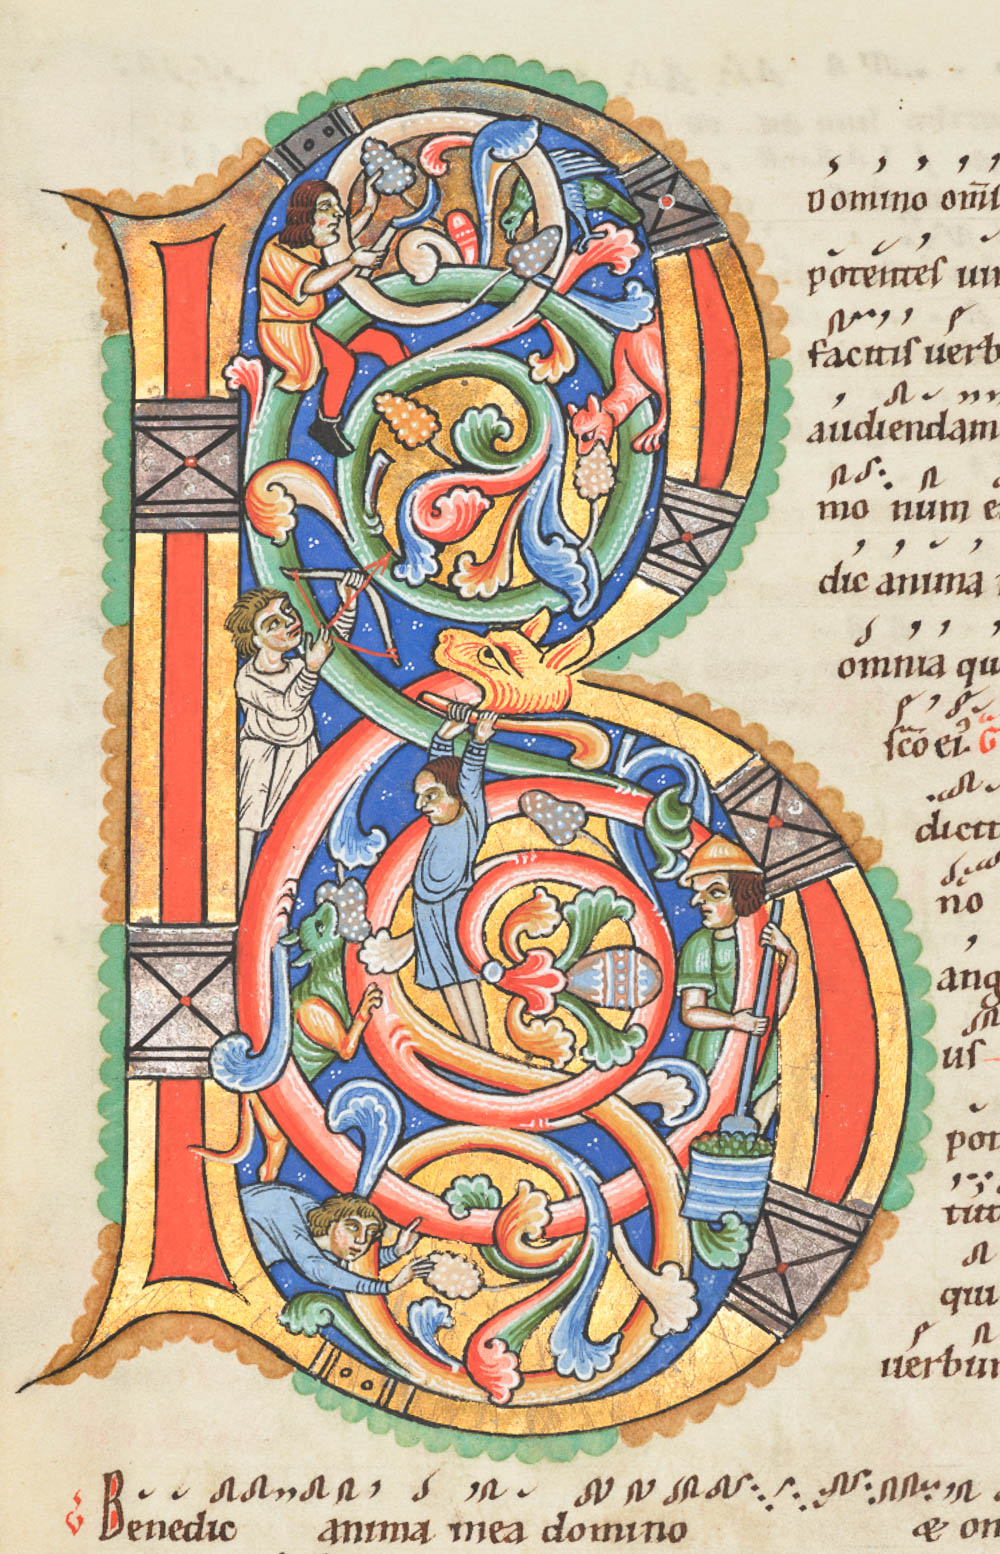 B
Domino om̅
potentes uir
facitis uerb
audiendam
mo num e
dic anima
omnia qu
sc̅o ei᷒ G
dicti
no
ang
us
pon
tut
qui
uerbum
Benedic anima mea domino & om